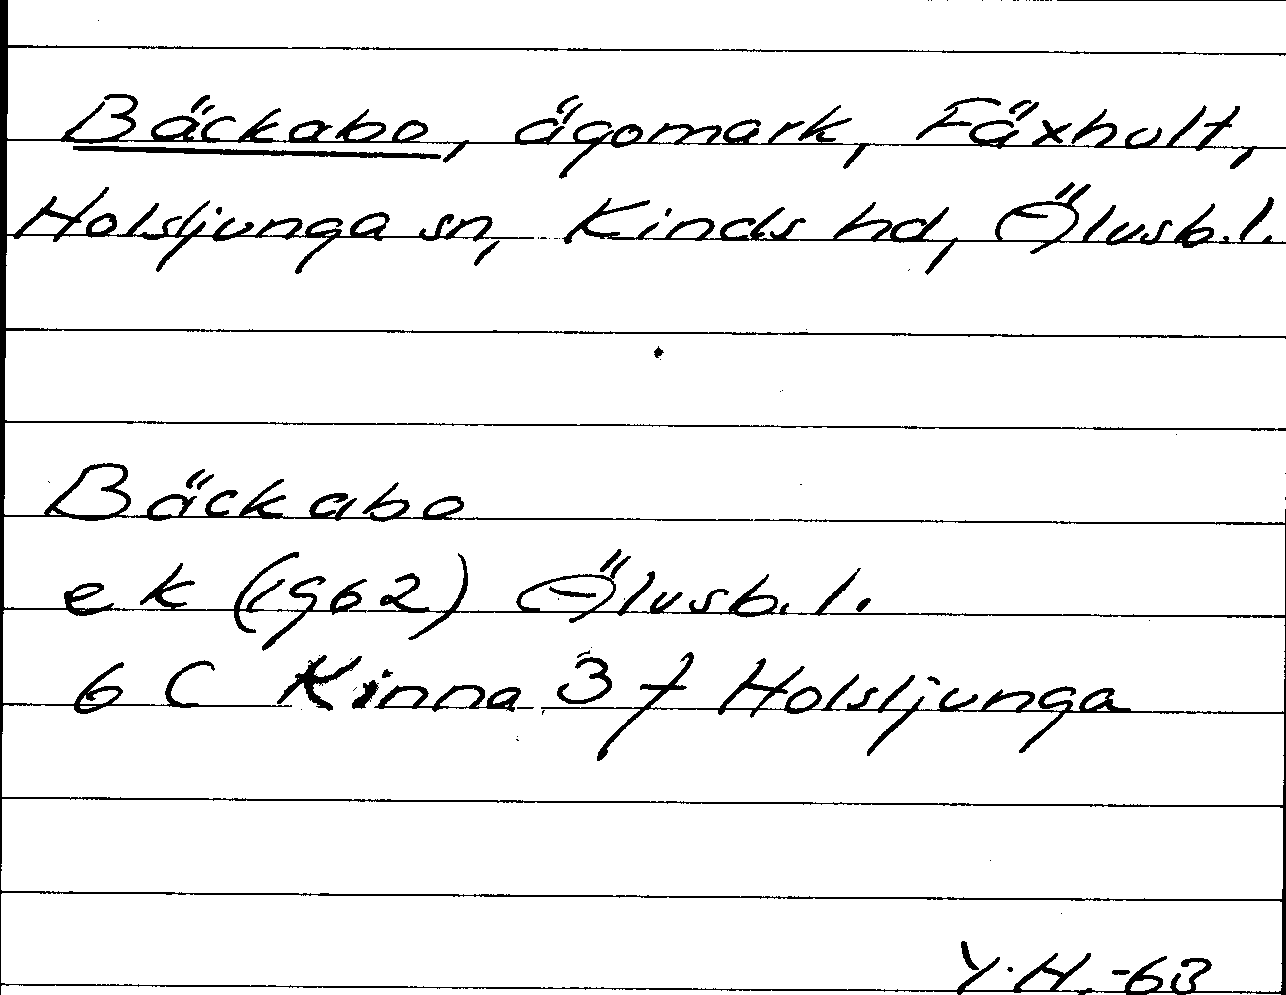 Bäckabo, ägomark, Fäxhult,
Holsljunga sn, Kinds hd, Älvsb.l.
Bäckabo
ek (1962) Älvsb.l.
6 C Kinna 3 f Holsljunga
Y.H.-63